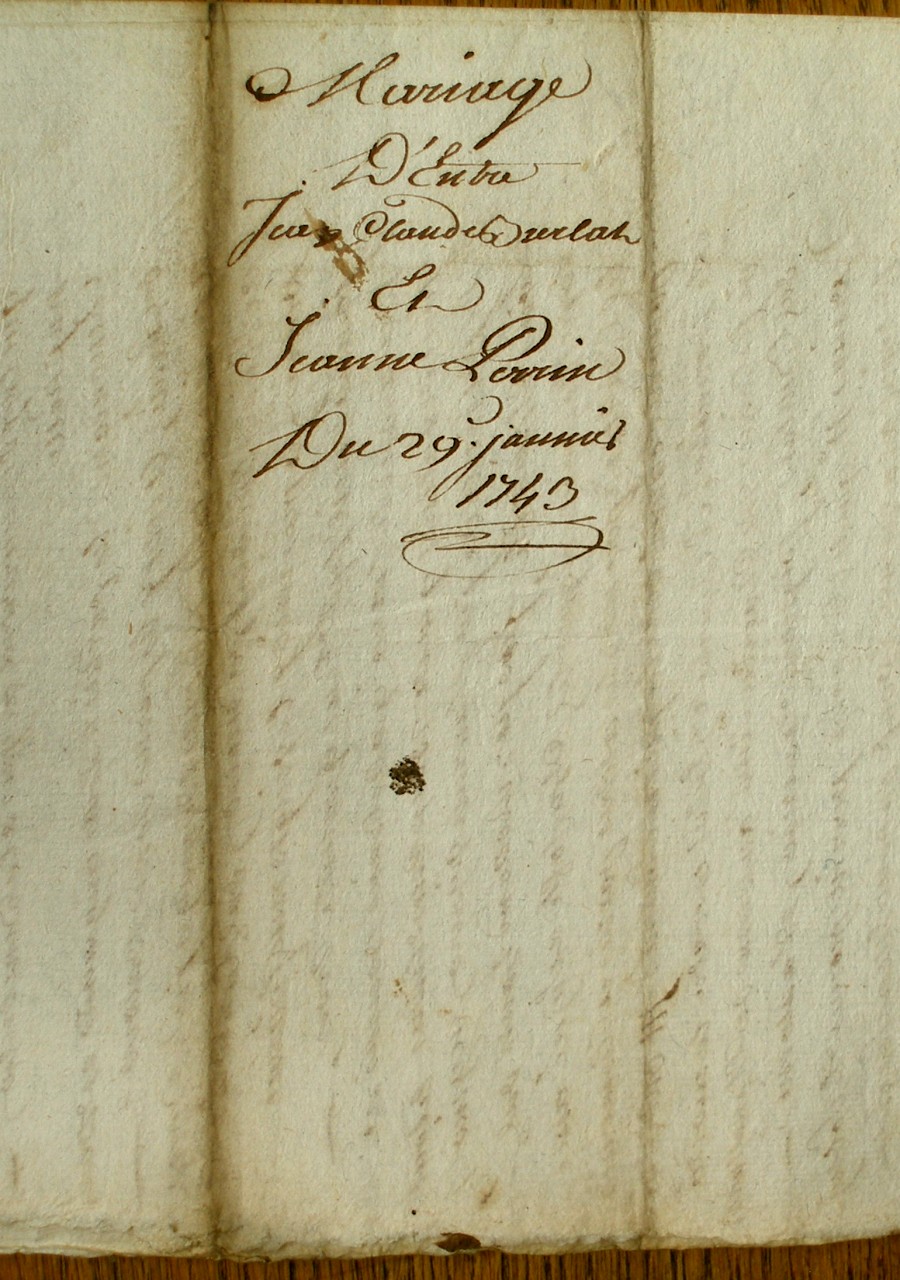 Mariage
D'Entre
Jean Claude Durlat
Et
Jeanne Perrin
Du 29.e janvier
1743